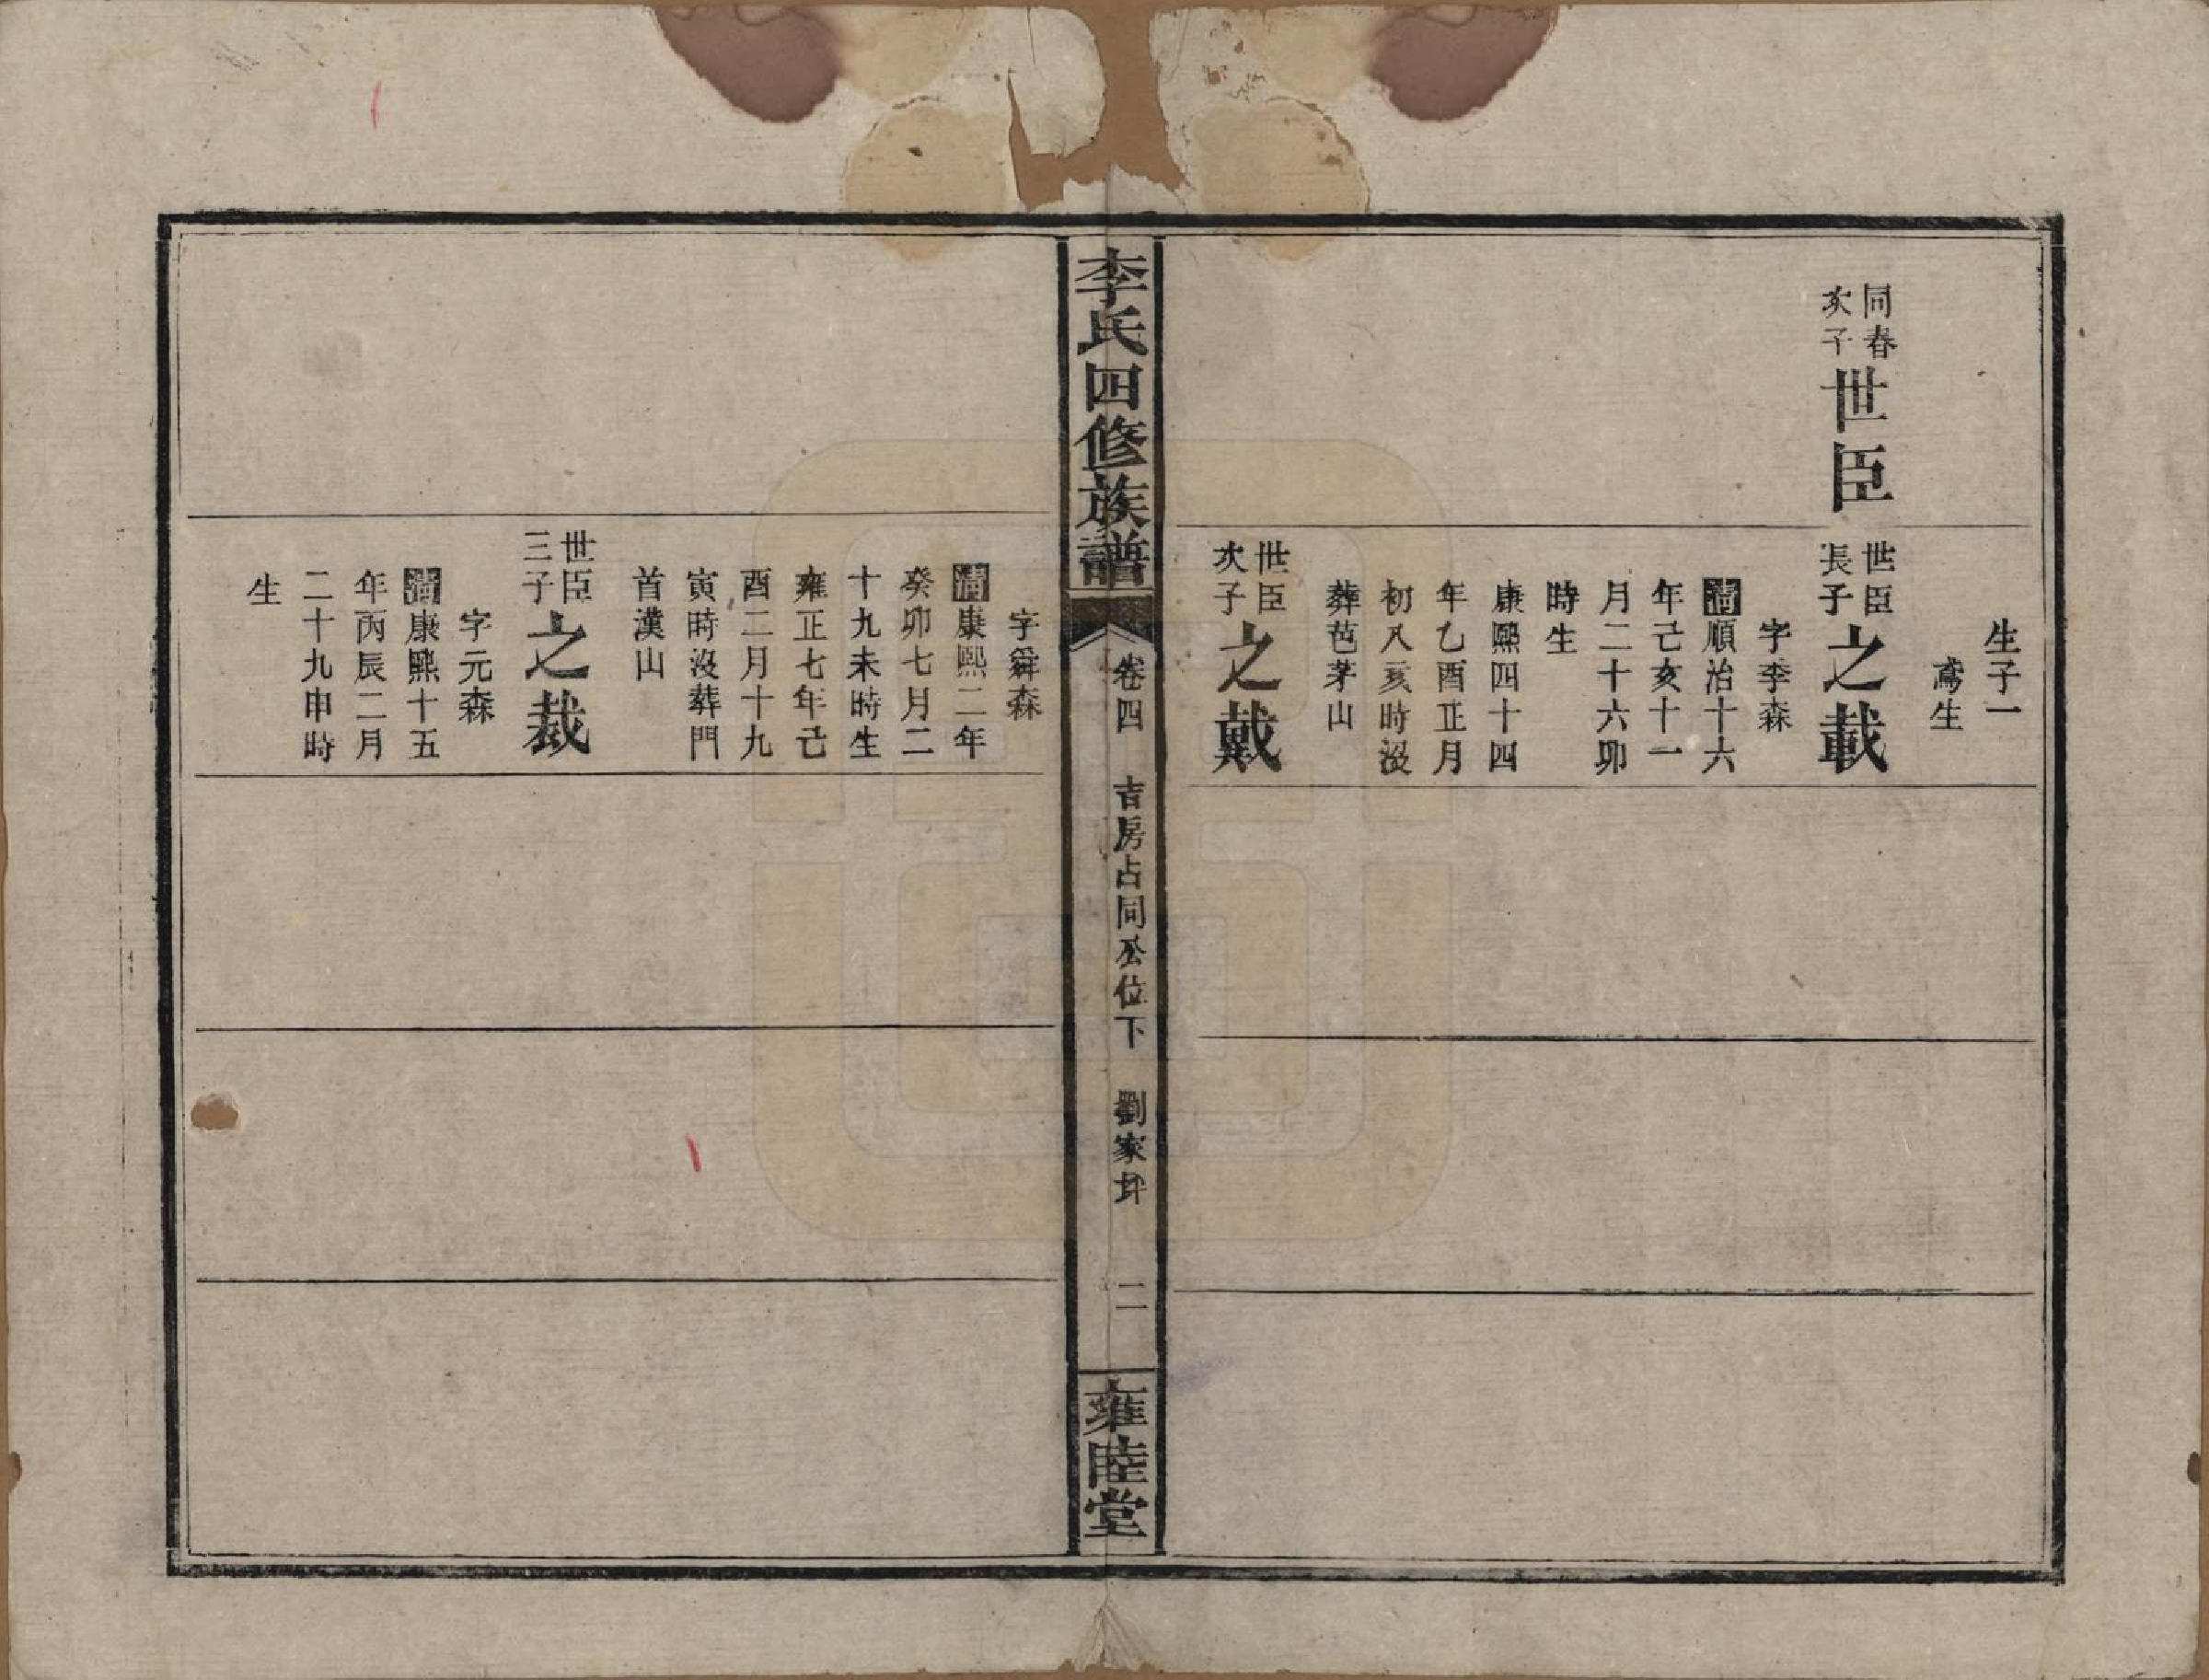 同春
次子
世臣
生子一
鳶生
世臣
長子
之載
字李森
清順治十六
年己亥十一
月二十六卯
時生
康熙四十四
年乙酉正月
初八亥時沒
葬芭茅山
世臣
次子
之戴
李氏四修族譜
卷四
吉房占同公位下
劉家坪
二
雍睦堂
字舜森
清康熙二年
癸卯七月二
十九未時生
雍正七年己
酉二月十九
寅時沒葬門
首漢山
世臣
三子
之裁
字元森
清康熙十五
年丙辰二月
二十九申時
生